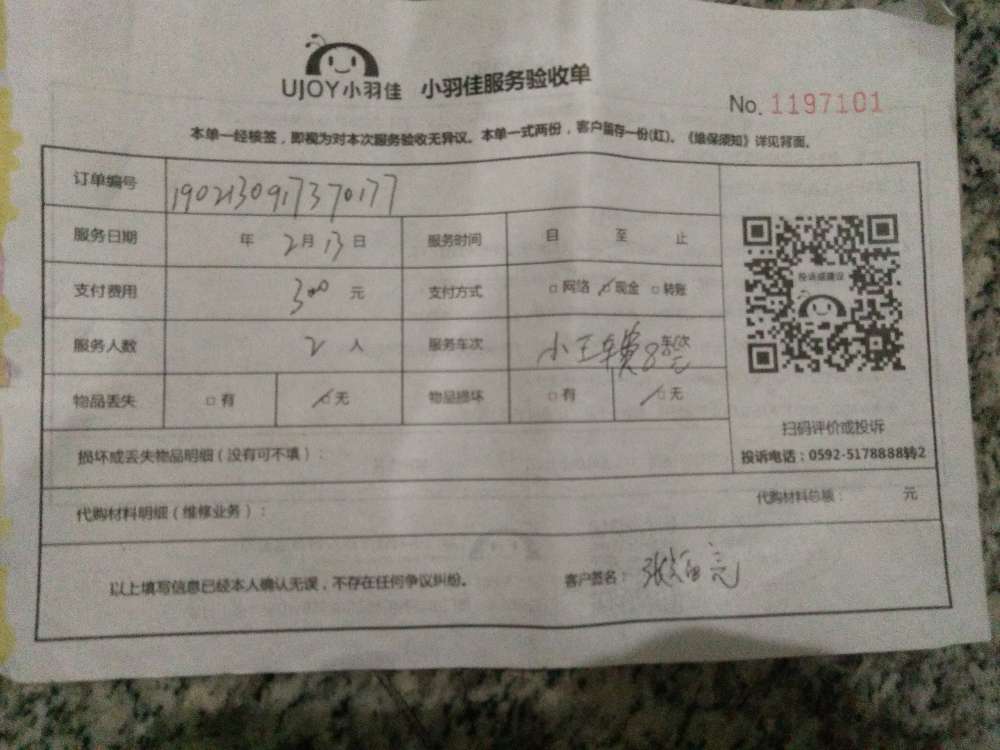 UJOY小羽佳 小羽佳服务验收单
No. 1197101
本单一经核签，即视为对本次服务验收无异议。本单一式两份，客户留存一份(红)。《维保须知》详见背面。
订单编号 1902130917370177
服务日期 年 2月13日 服务时间 自 至 止
支付费用 300 元 支付方式 □网络 ☑现金 □转账
服务人数 2 人 服务车次 小工车费80元 车/次
物品丢失 □有 ☑无 物品损坏 □有 ☑无
投诉或建议
扫码评价或投诉
投诉电话：0592-5178888转2
损坏或丢失物品明细（没有可不填）：
代购材料明细（维修业务）： 代购材料总额： 元
以上填写信息已经本人确认无误，不存在任何争议纠纷。 客户签名：张